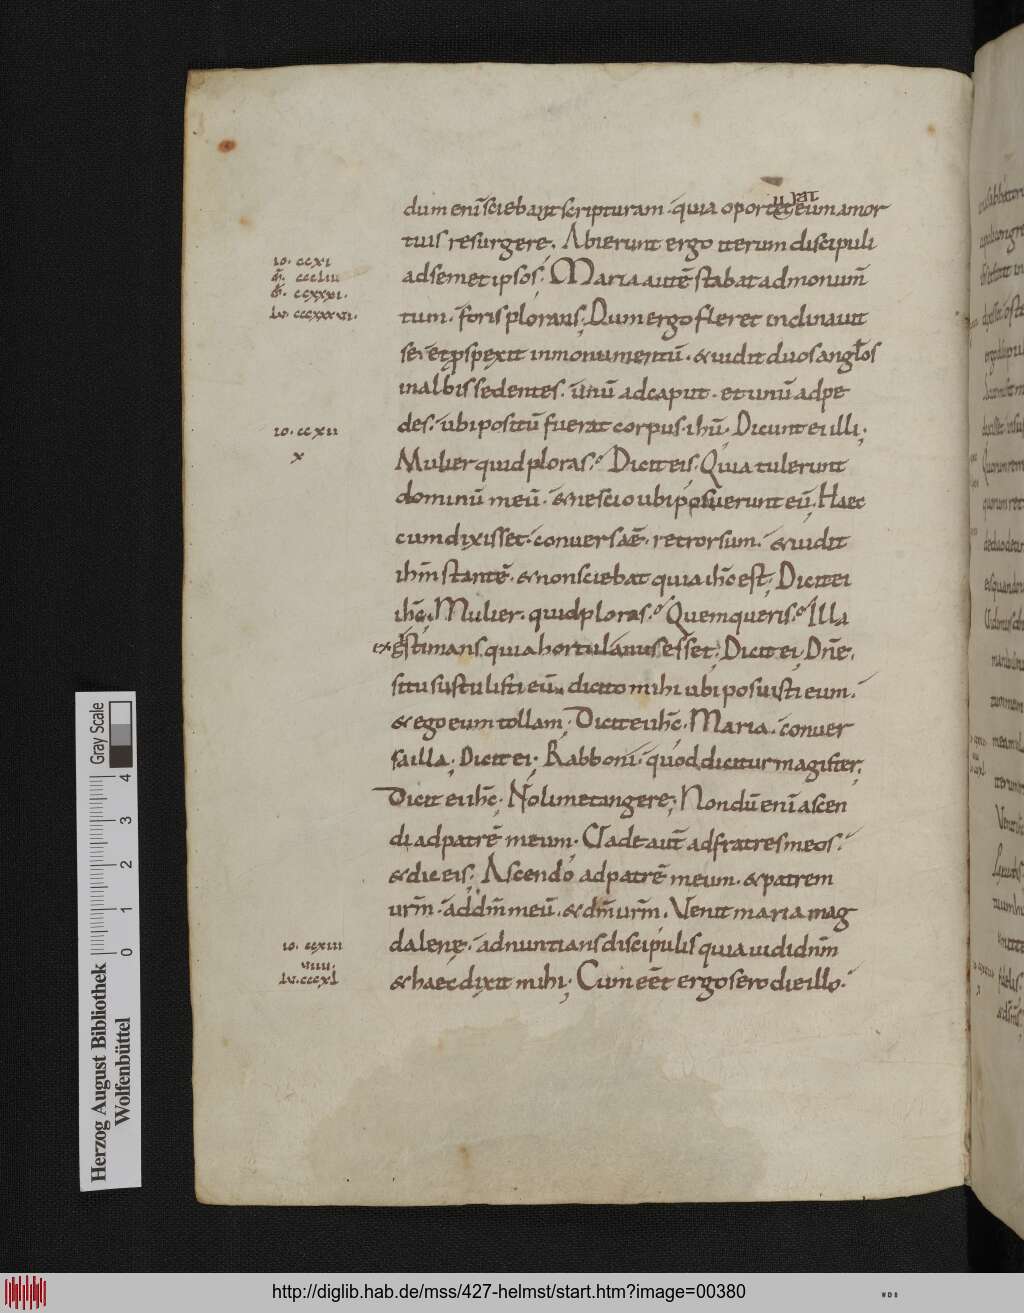 dum enī sciebant scripturam · quia oportet eum a mor
uırat
tuis resurgere. Abierunt ergo iterum discipuli
ad semet ipsos; Maria autē stabat ad monum̄
io. ccxi
tum · foris plorans; Dum ergo fleret inclinauit
ccxxxi.
lu. cccxxxvii.
se · et prospexit in monumentū · & uidit duos angłos
in albis sedentes · unū ad caput · et unū ad pe
des · ubi positū fuerat corpus ihū; Dicunt ei illi;
io. ccxii
x
Mulier quid ploras? Dicit eis · Quia tulerunt
dominū meū · & nescio ubi posuerunt eū; Haec
cum dixisset · conuersa ē retrorsum · & uidit
ihm̄ stantē · & non sciebat quia ihc̄ est; Dicit ei
ihc̄; Mulier · quid ploras? Quem queris? Illa
exęstimans quia hortulanus esset; Dicit ei; Dn̄e.
si tu sustulisti eū dicito mihi ubi posuisti eum.
& ego eum tollam; Dicit ei ihc̄; Maria · conuer
sa illa; Dicit ei; Rabboni · quod dicitur magister;
Dicit ei ihc̄; Noli me tangere; Nondū enī ascen
di ad patrē meum · Uade aut̄ ad fratres meos ·
& dic eis; Ascendo ad patrē meum · & patrem
urm̄ · ad dm̄ meū · & dm̄ urm̄. Venit maria mag
dalenę · adnuntians discipulis quia uidi dnm̄
io. ccxiii
viiii.
& haec dixit mihi; Cum eēt ergo sero die illo ·
lu. cccxl
Gray Scale
0 1 2 3 4
Herzog August Bibliothek
Wolfenbüttel
http://diglib.hab.de/mss/427-helmst/start.htm?image=00380